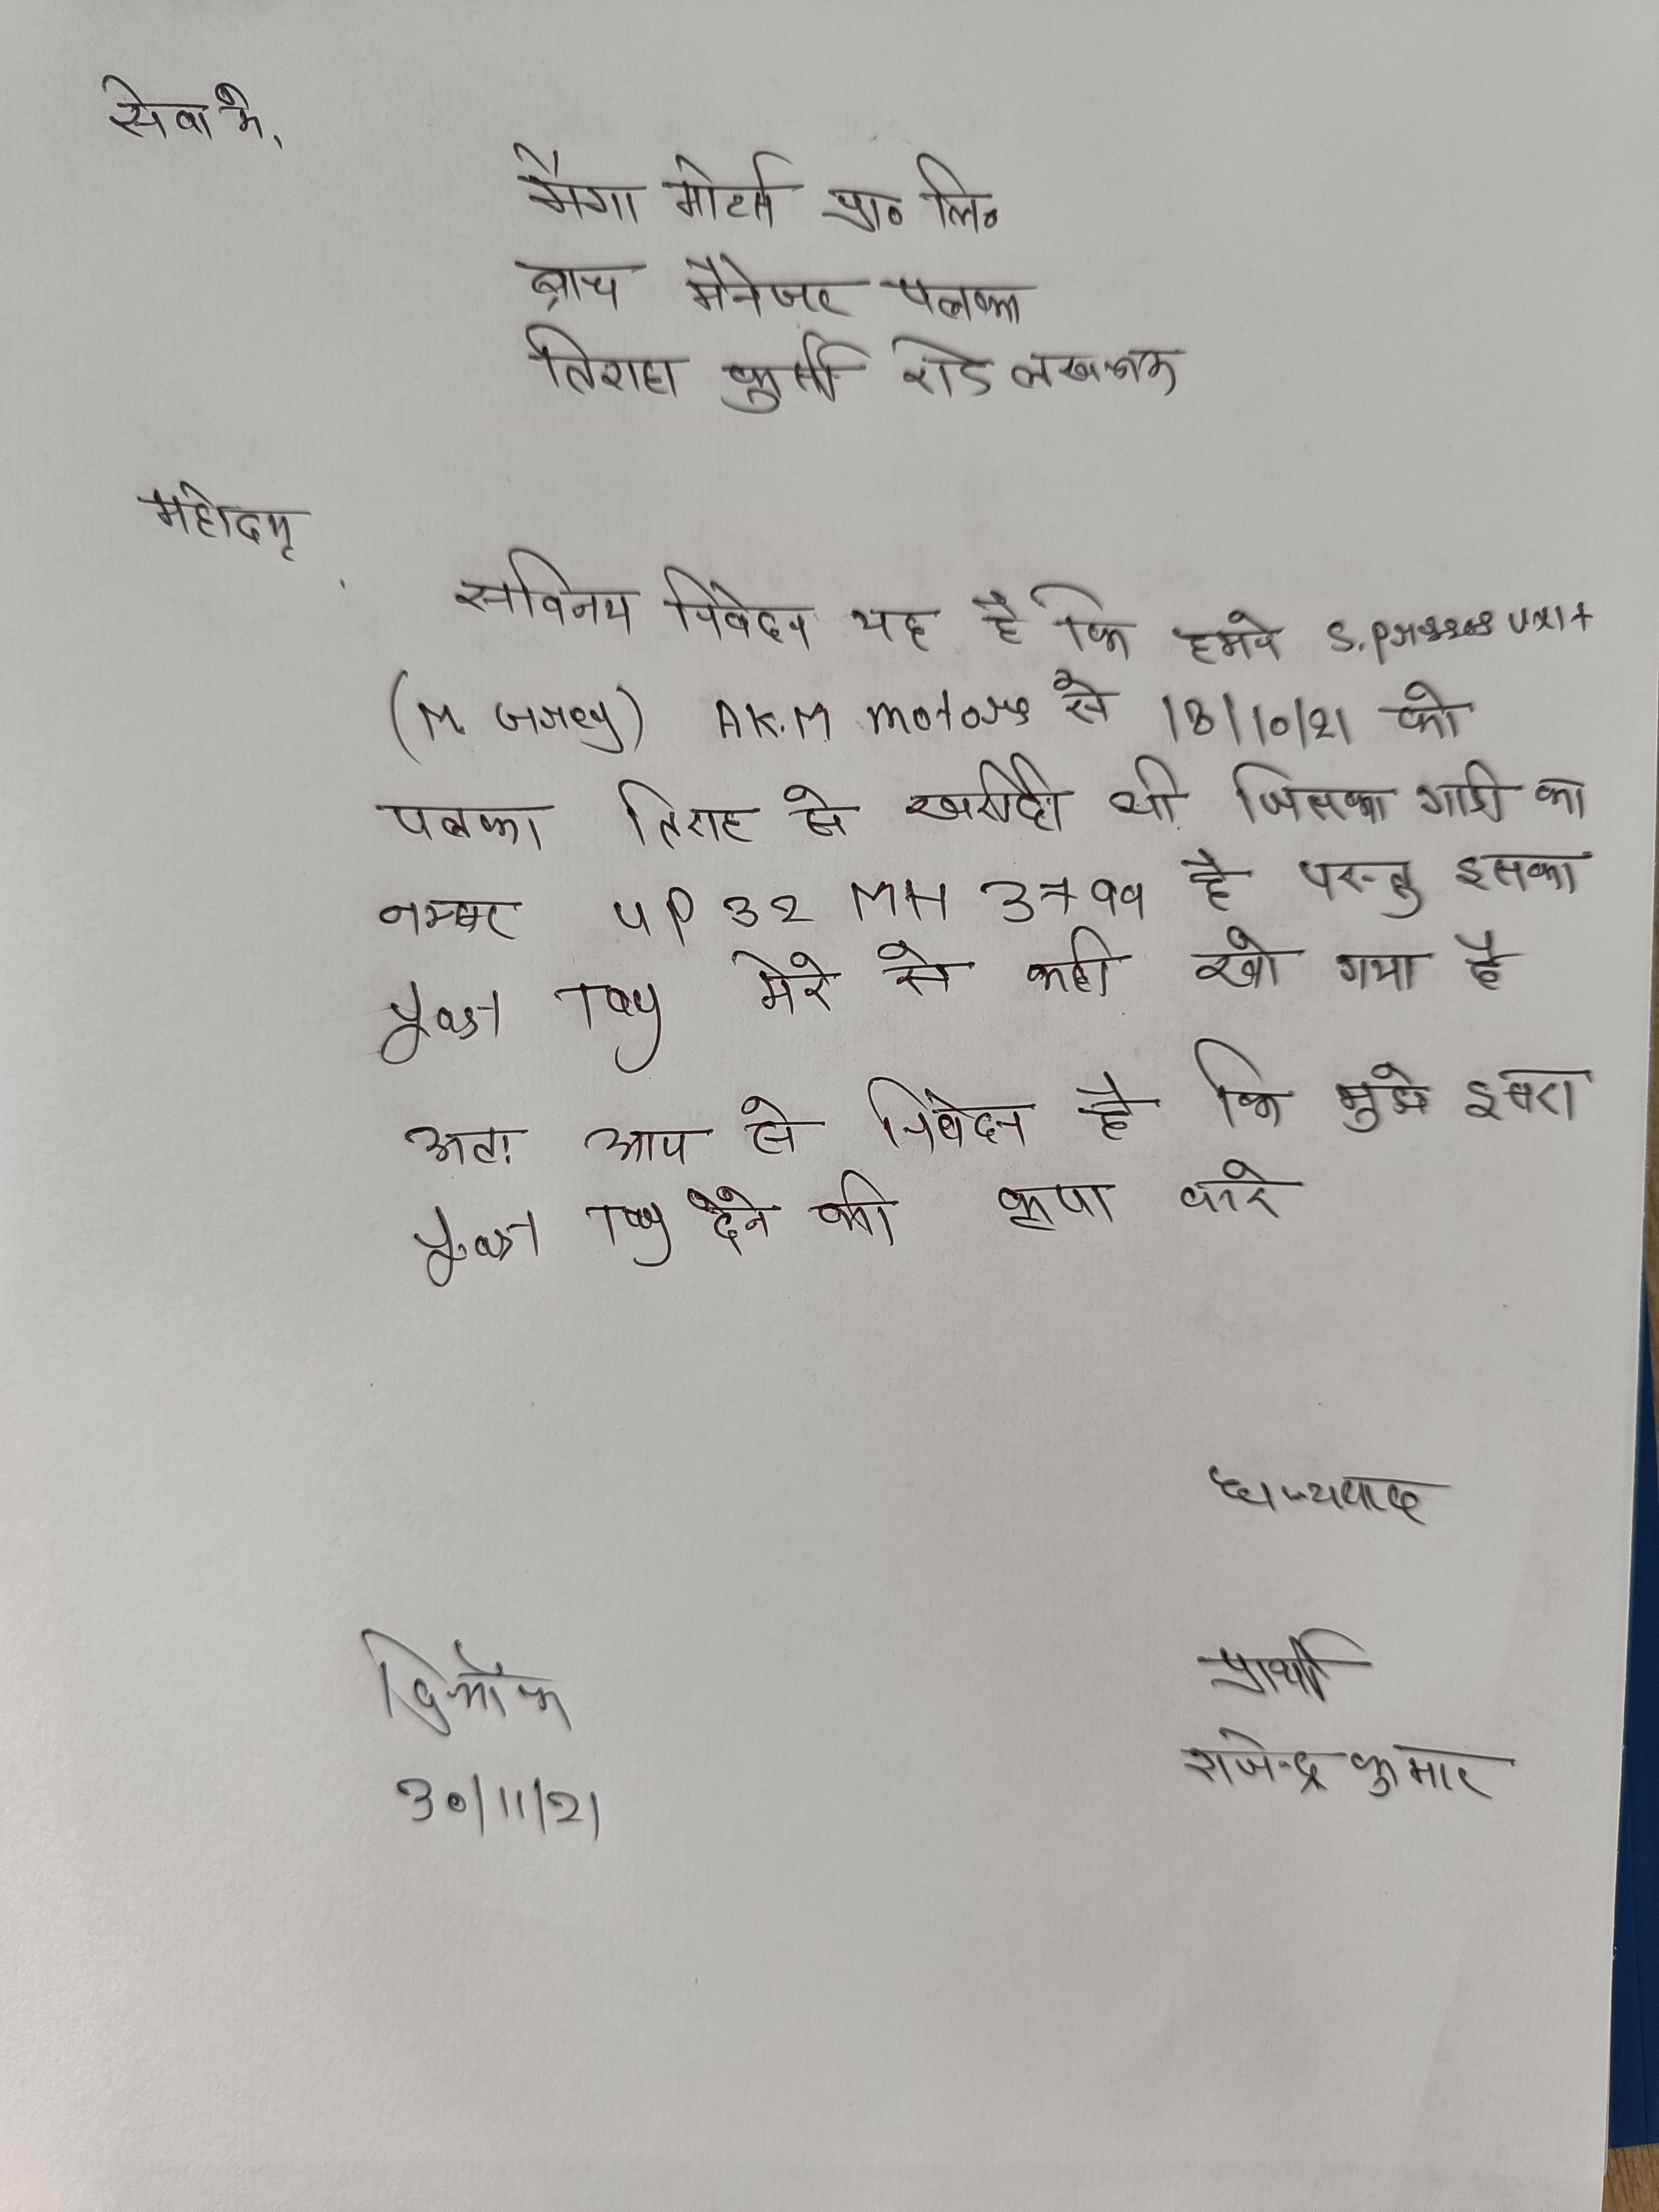 सेवा मे,
मैगा मोटर्स प्रा० लि०
ब्राच मैनेजर पलका
तिराहा कुर्सी रोड लखनऊ
महोदय
सविनय निवेदन यह है कि हमने S.Presso VXI+
(M. Grey) A.K.M motors से 13/10/21 को
पलका तिराह से खरीदी थी जिसका गाडी का
नम्बर UP 32 MH 3799 है परन्तु इसका
Fast Tag मेरे से कही खो गया है
अतः आप से निवेदन है कि मुझे दूसरा
Fast Tag देने की कृपा करे
धन्यवाद
दिनाँक
प्रार्थी
राजेन्द्र कुमार
30/11/21